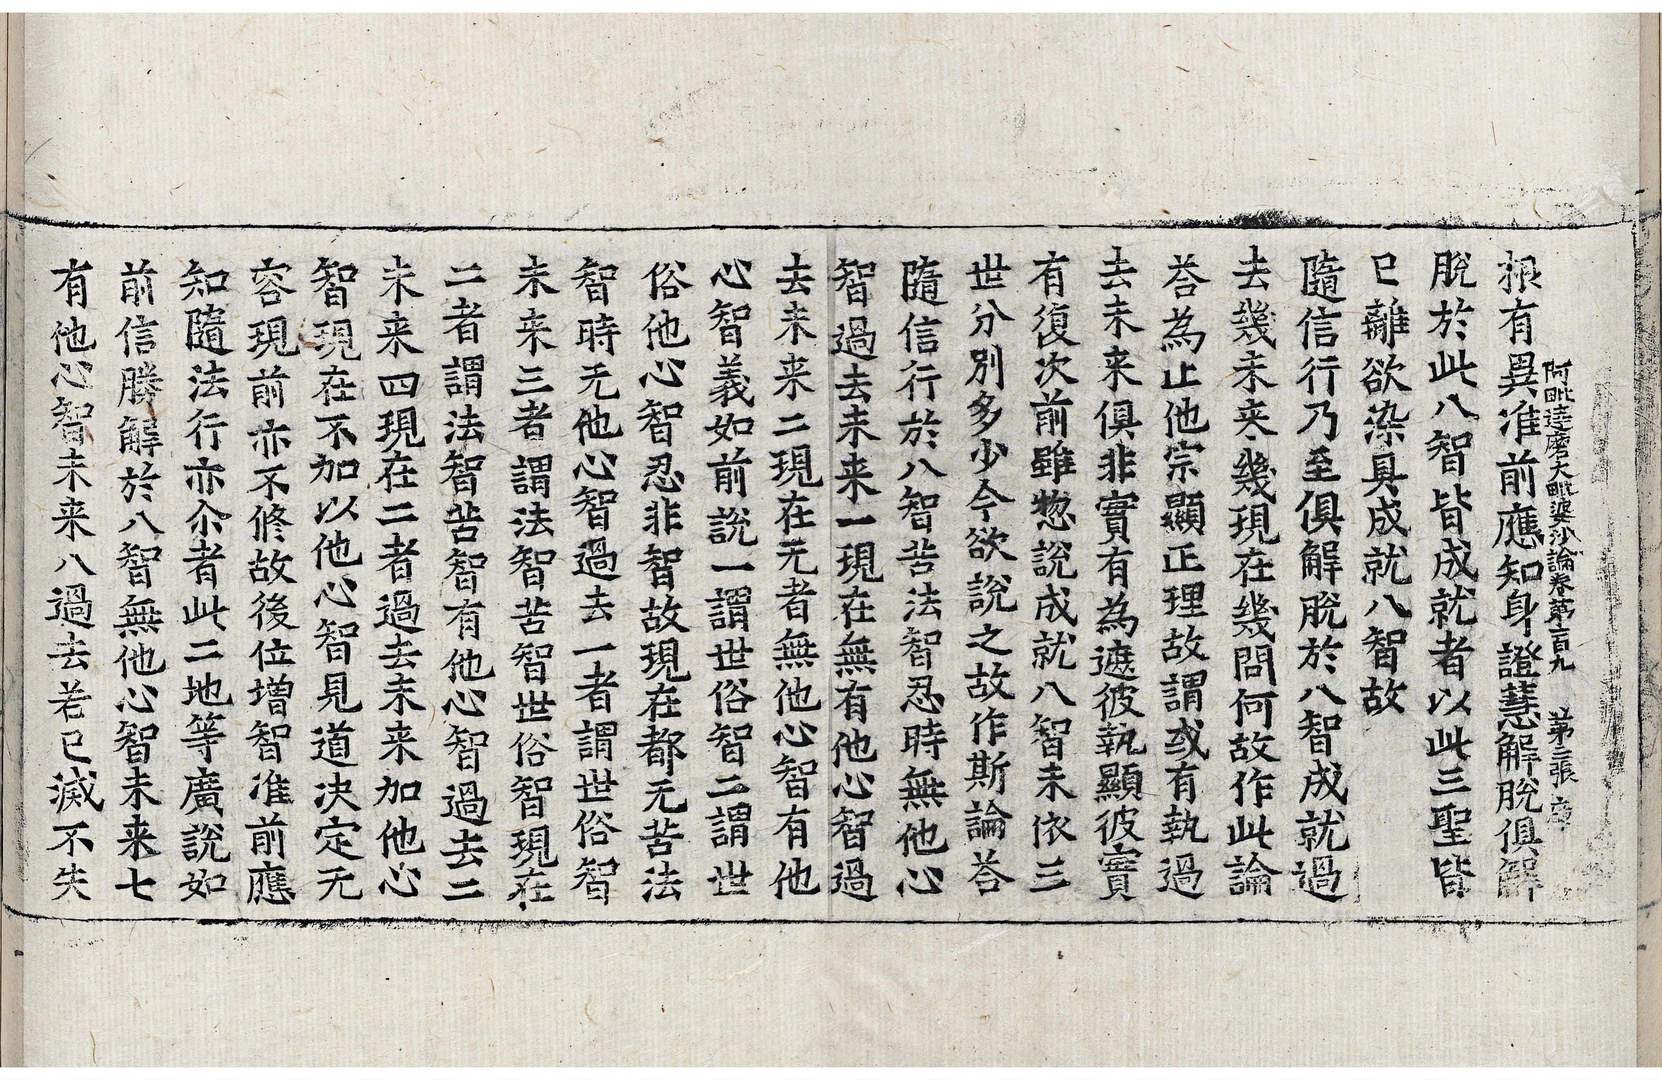 根有異准前應知身證慧解脫俱解
阿毗達磨大毗婆沙論卷第一百九 第三張 章
脫於此八智皆成就者以此三聖皆
已離欲染具成就八智故
隨信行乃至俱解脫於八智成就過
去幾未来幾現在幾問何故作此論
荅為止他宗顯正理故謂或有執過
去未来俱非實有為遮彼執顯彼實
有復次前雖惣說成就八智未依三
世分別多少今欲說之故作斯論荅
隨信行於八智苦法智忍時無他心
智過去未来一現在無有他心智過
去未来二現在无者無他心智有他
心智義如前說一謂世俗智二謂世
俗他心智忍非智故現在都无苦法
智時无他心智過去一者謂世俗智
未来三者謂法智苦智世俗智現在
二者謂法智苦智有他心智過去二
未来四現在二者過去未来加他心
智現在不加以他心智見道決定无
容現前亦不修故後位増智准前應
知隨法行亦尒者此二地等廣說如
前信勝解於八智無他心智未来七
有他心智未来八過去若已滅不失